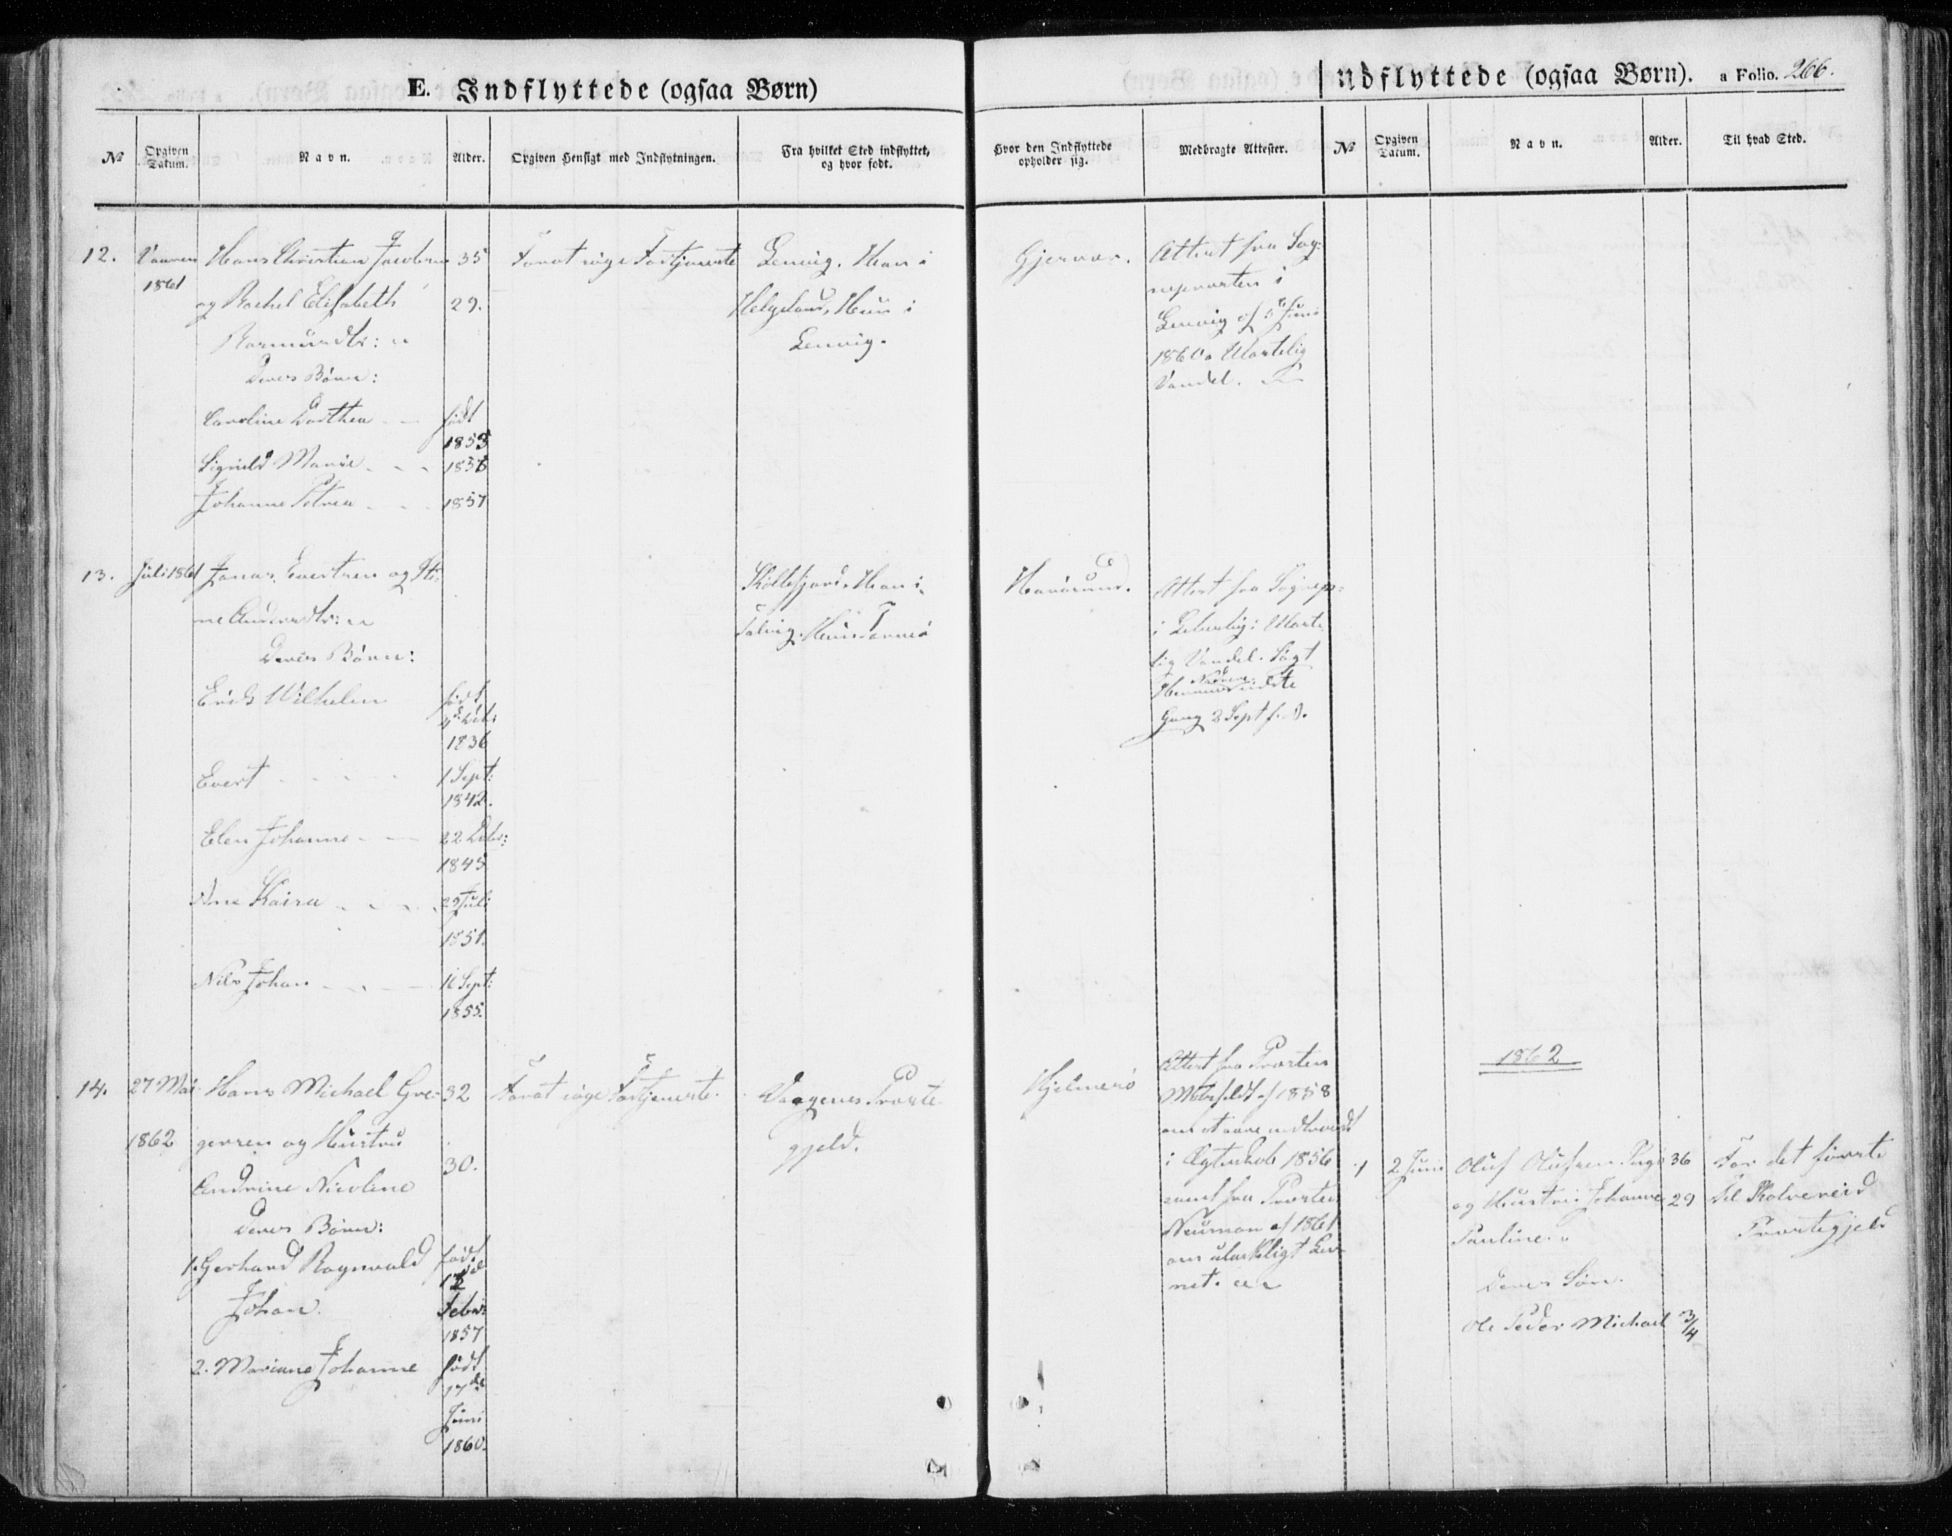 E. Indflyttede (ogsaa Børn)
Indflyttede (ogsaa Børn). a Folio. 266.
№ Opgiven Datum. Navn. Alder. Opgiven Hensigt med Indflytningen. Fra hvilket Sted indflyttet, og hvor født.
Hvor den Indflyttede opholder sig. Medbragte Attester. № Opgiven Datum. Navn. Alder. Til hvad Sted.
12. Vaaren 1861
Hans Christian Jacobsen 35
og Rachel Elisabeth 29.
Rasmusdtr:
Deres Børn:
Caroline Dorthea født 1853
Marie 1856
Johanne Petrea 1857
For at søge Fortjeneste
Lenvig. Han i
Helgeland, Hun i
Lenvig.
Gjesvær.
Attest fra Sog-
nepræsten i
Lenvig af 5 Juni
1860 Ulastelig
Vandel.
13. Juli 1861
Jonas Evertsen og Sti-
ne Andersdtr:
Deres Børn:
Erik Wilhelm født
1836
Evert 1 Sept: 1842.
Elen Johanne 22 1845
Ane Kaisa 29 Juli 1851.
Nils Johan 16 Sept: 1855.
Kollefjord, Han i
Hun
Havøsund.
Attest fra Sognep:
i Lebesby: Ulaste-
lig Vandel. Søgt
Gang 2 Sept
14. 27 Mai 1862
Hans Michael Gre- 32
gersen og Hustru
Andrine Nicoline 30.
Deres Børn:
1. Gerhard Ragnvald født
Johan. 12 Febr: 1857
2. Mariane Johanne født 17de Juni 1860.
For at søge Fortjeneste.
Vaagens Præste-
gjeld.
Hjelmesø
Attest fra Præsten
af 1858
om at være indtraadt
i Ægteskab 1856
samt fra Præsten
Neuman af 1861
om ulasteligt Lev-
net.
1862
1 2 Juni
Oluf Olufsen 36
og Hustru Johanne 29
Pauline.
Deres Søn.
Ole Peder Michael 3/4
For det første
til Kolvereid
Præstegjeld